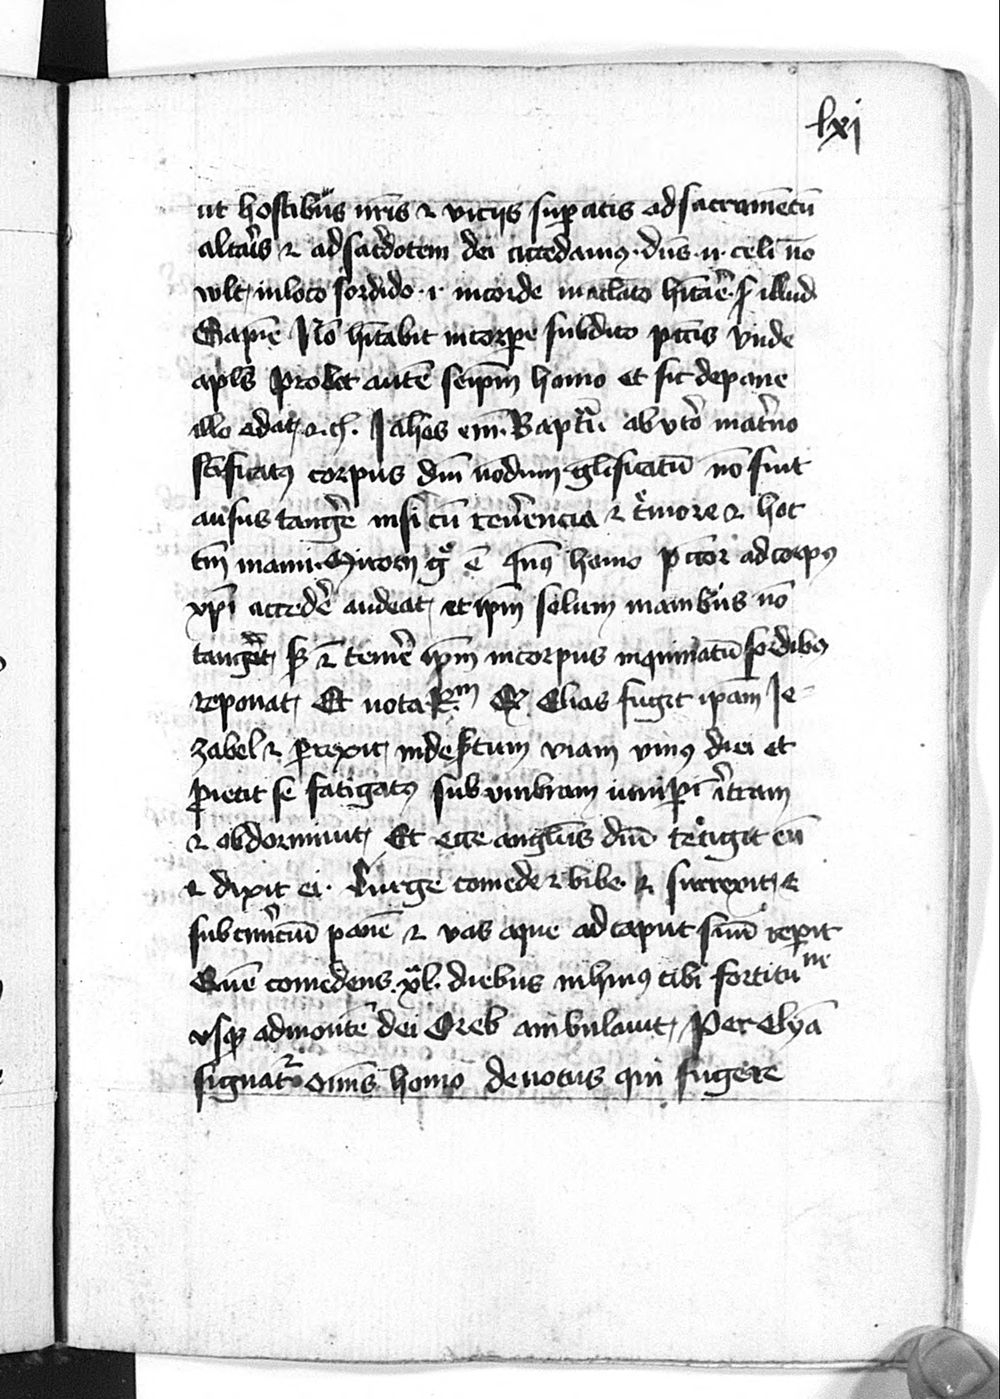 lxj
ut hostibus nr̄is ⁊ vicijs suꝑatis ad sacramentū
altar̄is ⁊ ad sac̄dotem dei accedamꝰ. dn̄s .n. celi nō
wlt in loco sordido .i. in corde maclato hītar̄e. sꝫ illud
Sapīe Nō hītabit in corꝑe subdito pcc̄is Vnde
apl̄s Probet autē seip̄m homo et sic de pane
illo edat ⁊ c̄. Joh̄es em̄ Bapt̄a ab vt̄o mat̄no
sc̄ificatꝰ corpus dn̄i nōdum gl̄ificatū nō fuit
ausus tanḡe nisi cū reu̅encia ⁊ t̄more ⁊ hoc
tm̄ manu. Miror gͦ ē qn̄o homo pc̄cor ad corpꝰ
xp̄i acced̄e audeat et ip̄m solum manibus nō
tang̅e sꝫ ⁊ tem̄e ip̄m in corpus inquinatū sordibꝰ
reponat Et nota kͫ. Elias fugit ip̄am Je-
zabel ⁊ ꝑrexit in des̄tum viam vniꝰ diei et
ꝓiecit se fatigatꝰ sub vmbram iuniꝑi īt̄ram
⁊ obdormiuit Et ecce angelus dn̄i tetigit eū
⁊ dixit ei. Surge comede ⁊ bibe. ⁊ surrexit ⁊
subcin̄ciū panē ⁊ vas aque ad caput suū reꝑit
Quē comedens .xl. diebus in huiꝰ cibi fortitūne
vsqꝫ ad montē dei Oreb ambulauit Per Elyā
signat᷑ om̄is homo deuotus qui fugere